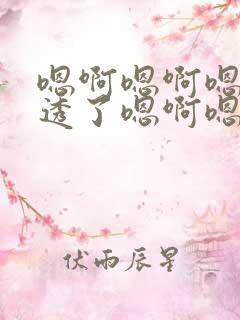 嗯啊嗯啊嗯
透了嗯啊嗯
伏雨辰星